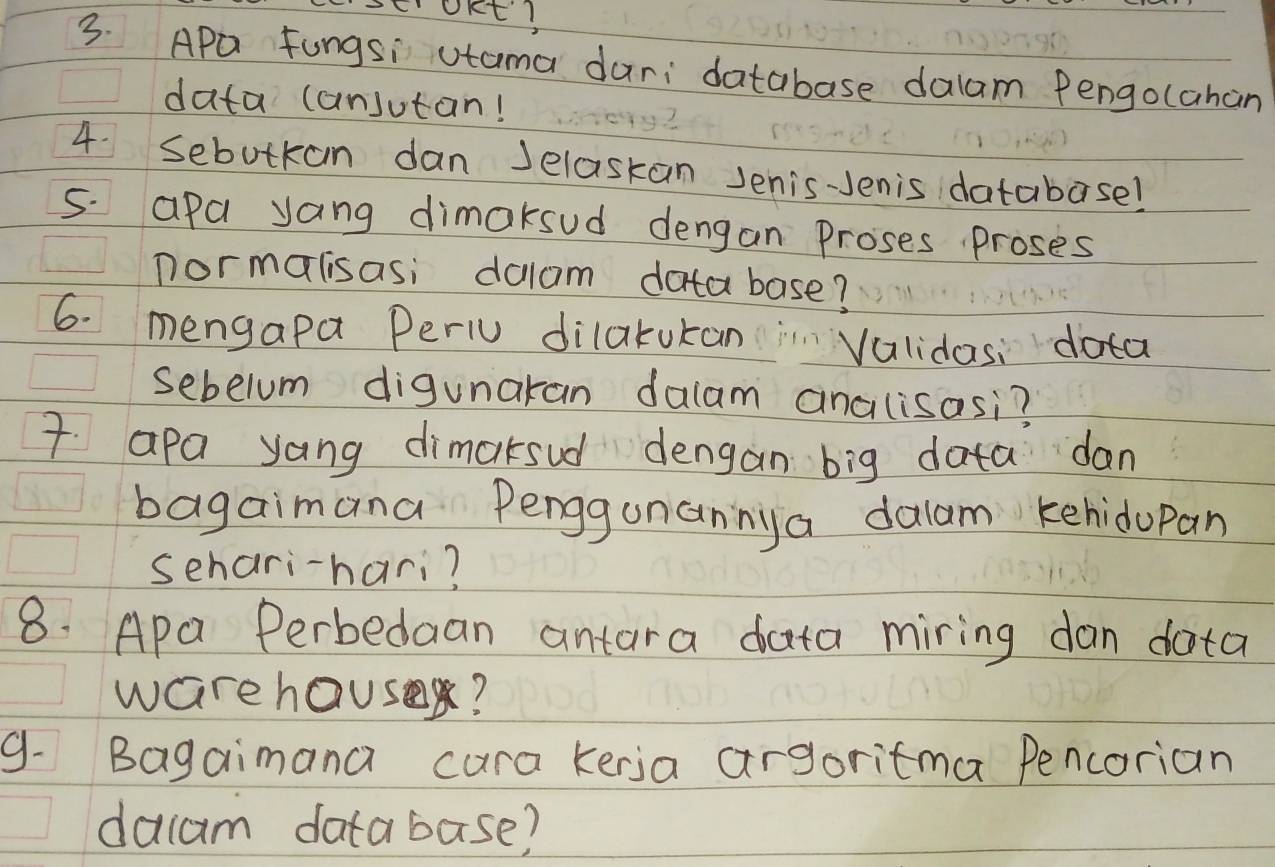 3. APa fungsi utama dari database dalam Pengolahan
data lanjutan!
4. Sebutkan dan Jelaskan Jenis-Jenis database!
5. apa yang dimaksud dengan Proses Proses
normalisasi dalam database?
6. mengapa Perlu dilakukan validasi data
sebelum digunakan dalam analisasi?
7. apa yang dimaksud dengan big data dan
bagaimana Penggunannya dalam kehidupan
sehari-hari?
8. Apa Perbedaan antara data miring dan data
warehouse?
9. Bagaimana cara kerja argoritma Pencarian
dalam database?